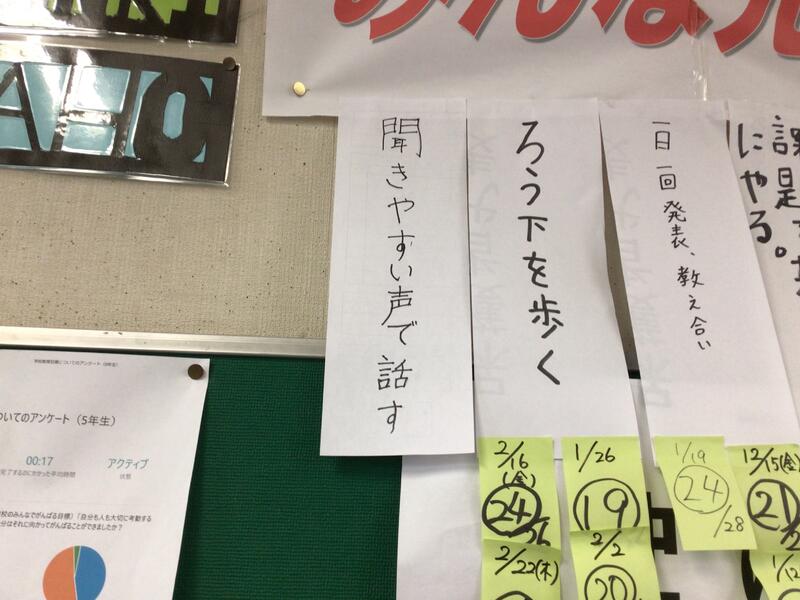 みんな
にやる。
一日一回発表、教え合い
ろう下を歩く
聞きやすい声で話す
2/16
(金)
24
26
1/26
19
1/19
24
/28
12/15(金)
21
2/22(木)
2/2
20
1/12
ついてのアンケート（5年生）
00:17
アクティブ
完了するのにかかった平均時間
状態
校のみんなでがんばる目標）「自分も人も大切に考動する
分はそれに向かってがんばることができましたか？